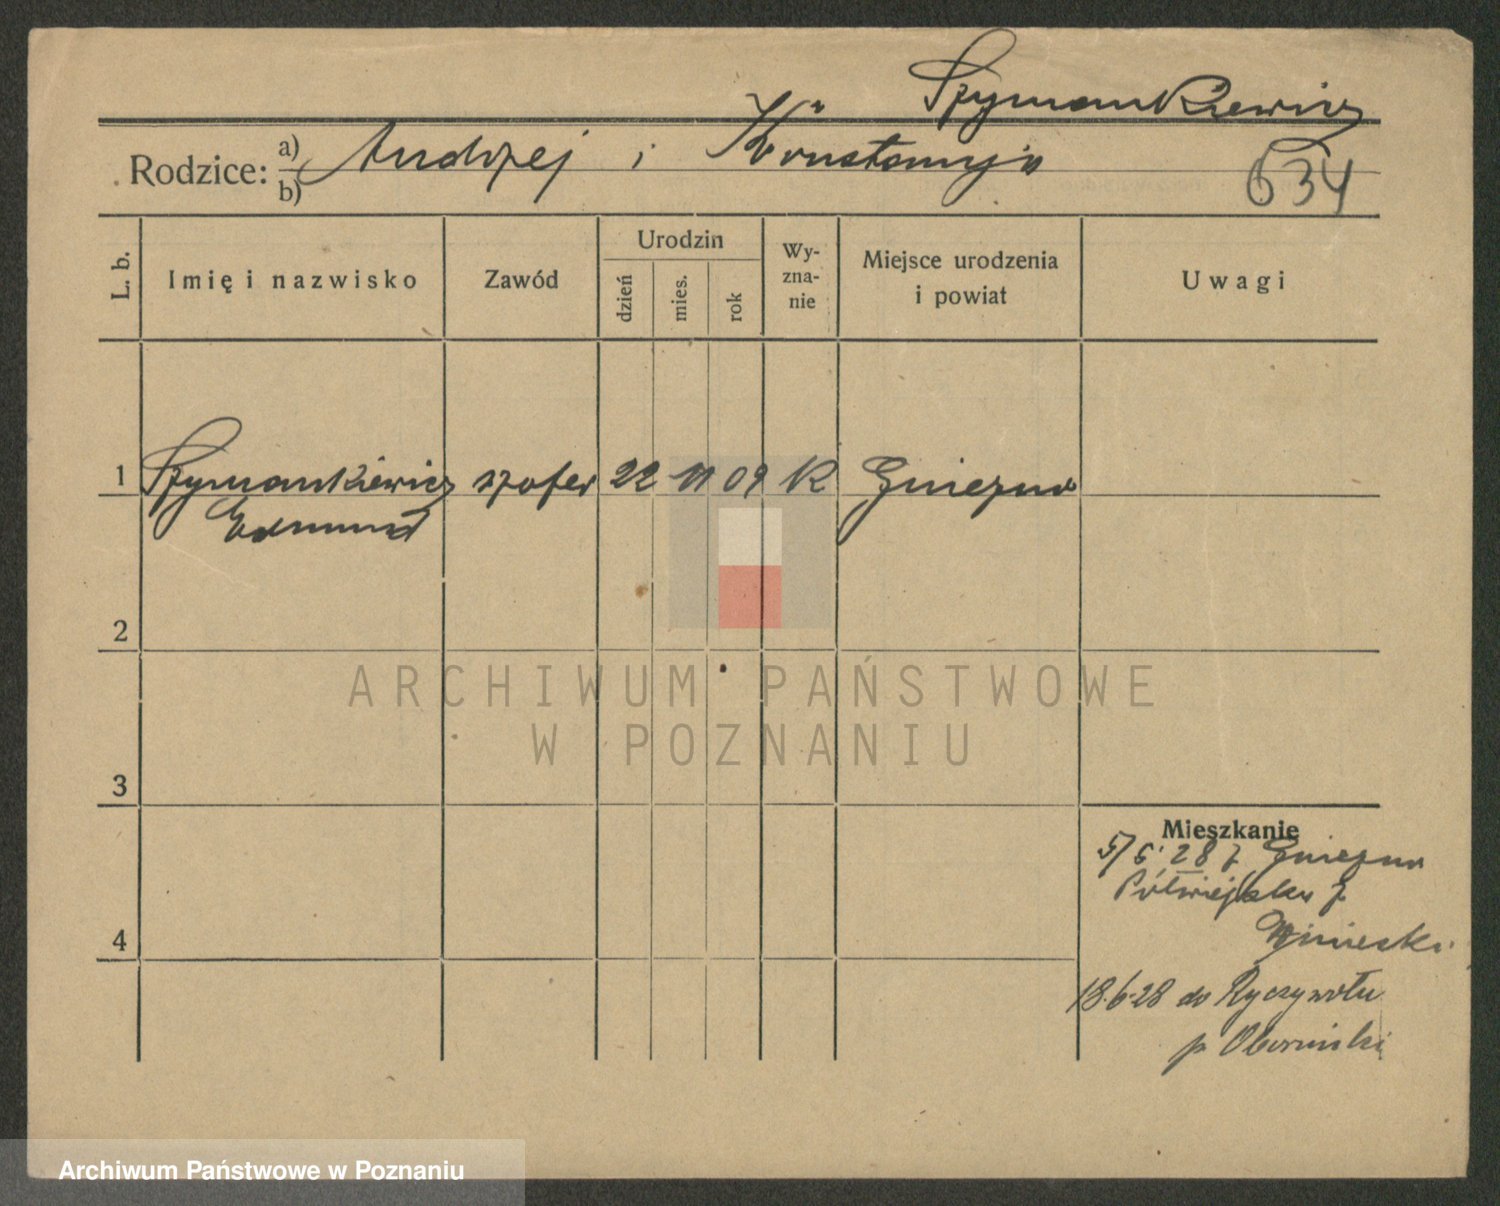 Szymankiewicz
Rodzice: a) b) Andrzej i Konstancja
634
L. b.
Imię i nazwisko
Zawód
Urodzin
dzień
mies.
rok
Wy-
zna-
nie
Miejsce urodzenia
i powiat
Uwagi
1 Szymankiewicz szofer 22 11 09 K Gniezno
Edmund
2
3
4
Mieszkanie
5/6 28 z Gniezna
Półwiejska
18.6.28 do Ryczywołu
p. Obornicki
ARCHIWUM PAŃSTWOWE
W POZNANIU
Archiwum Państwowe w Poznaniu